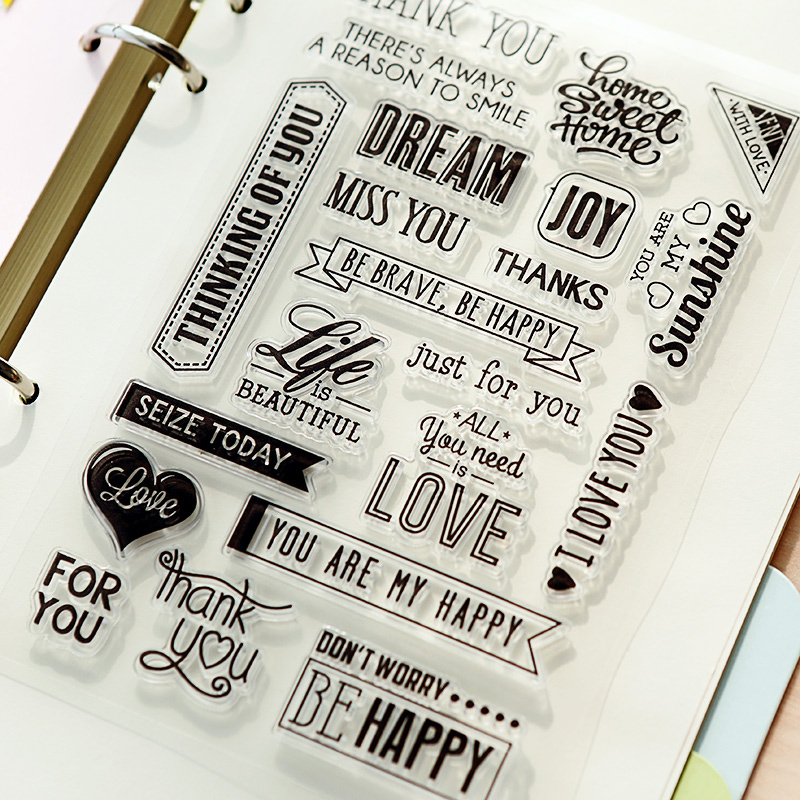 THANK YOU
THERE'S ALWAYS
A REASON TO SMILE
home
Sweet
Home
SENT
WITH LOVE
THINKING OF YOU
DREAM
MISS YOU
JOY
THANKS
YOU ARE
MY
Sunshine
BE BRAVE, BE HAPPY
Life
is
BEAUTIFUL
just for you
SEIZE TODAY
ALL
You need
is
LOVE
I LOVE YOU
Love
YOU ARE MY HAPPY
FOR
YOU
thank
you
DON'T WORRY.....
BE HAPPY